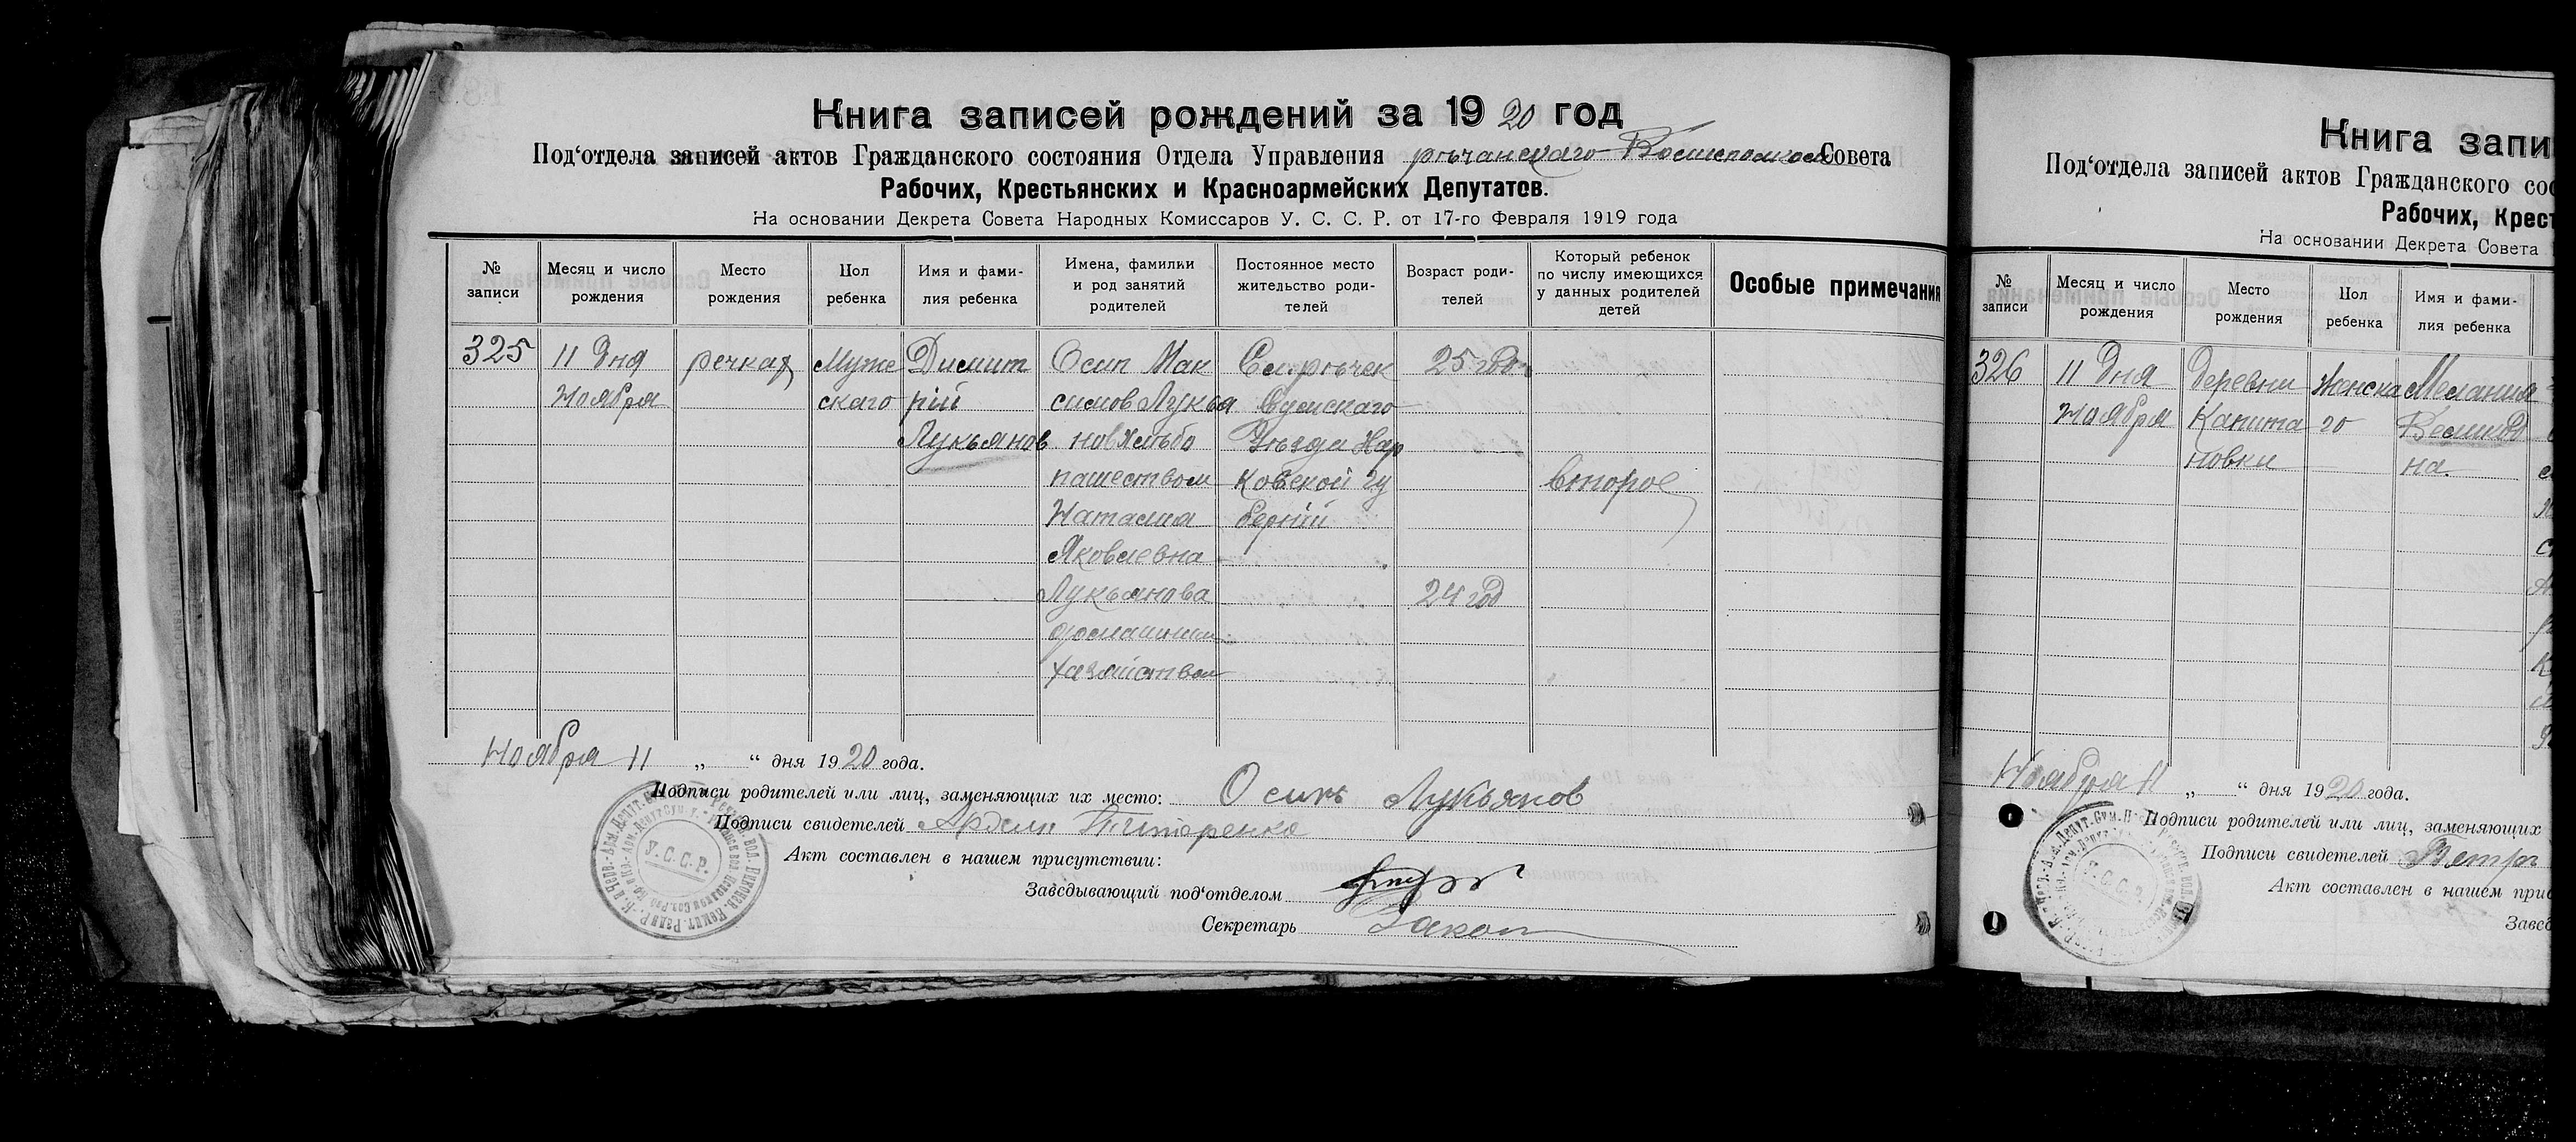 Книга записей рождений за 1920 год
Под'отдела записей актов Гражданского состояния Отдела Управления рѣчанскаго Совета
Рабочих, Крестьянских и Красноармейских Депутатов.
На основании Декрета Совета Народных Комиссаров У. С. С. Р. от 17-го Февраля 1919 года
№ записи
Месяц и число рождения
Место рождения
Пол ребенка
Имя и фамилия ребенка
Имена, фамилки и род занятий родителей
Постоянное место жительство родителей
Возраст родителей
Который ребенок по числу имеющихся у данных родителей детей
Особые примечания
325
11 дня
Ноября
речках
Муже
скаго
Димит
рій
Лукьянов
Осип Мак
симов Лукья
нов хлѣбо
пашеством
Наталия
Яковлевна
Лукьянова
домашним
хазяйством
Сел. рѣчек
Сумскаго
Уѣзда Хар
ковской гу
берніи
25 год
24 год
второе
Ноября 11 „ “ дня 1920 года.
Подписи родителей или лиц, заменяющих их место: Осипъ Лукьянов
Подписи свидетелей
Акт составлен в нашем присутствии:
Заведывающий под'отделом
Секретарь
У.С.С.Р.
Книга запи
Под'отдела записей актов Гражданского сос
Рабочих, Крест
На основании Декрета Совета
№ записи
Месяц и число рождения
Место рождения
Пол ребенка
Имя и фамилия ребенка
326
11 дня
Ноября
деревни
Капита
новки
Женска
го
Мелания
на
Ноября 11 „ “ дня 1920 года.
Подписи родителей или лиц, заменяющих
Подписи свидетелей Петръ
Акт составлен в нашем прис
Завед